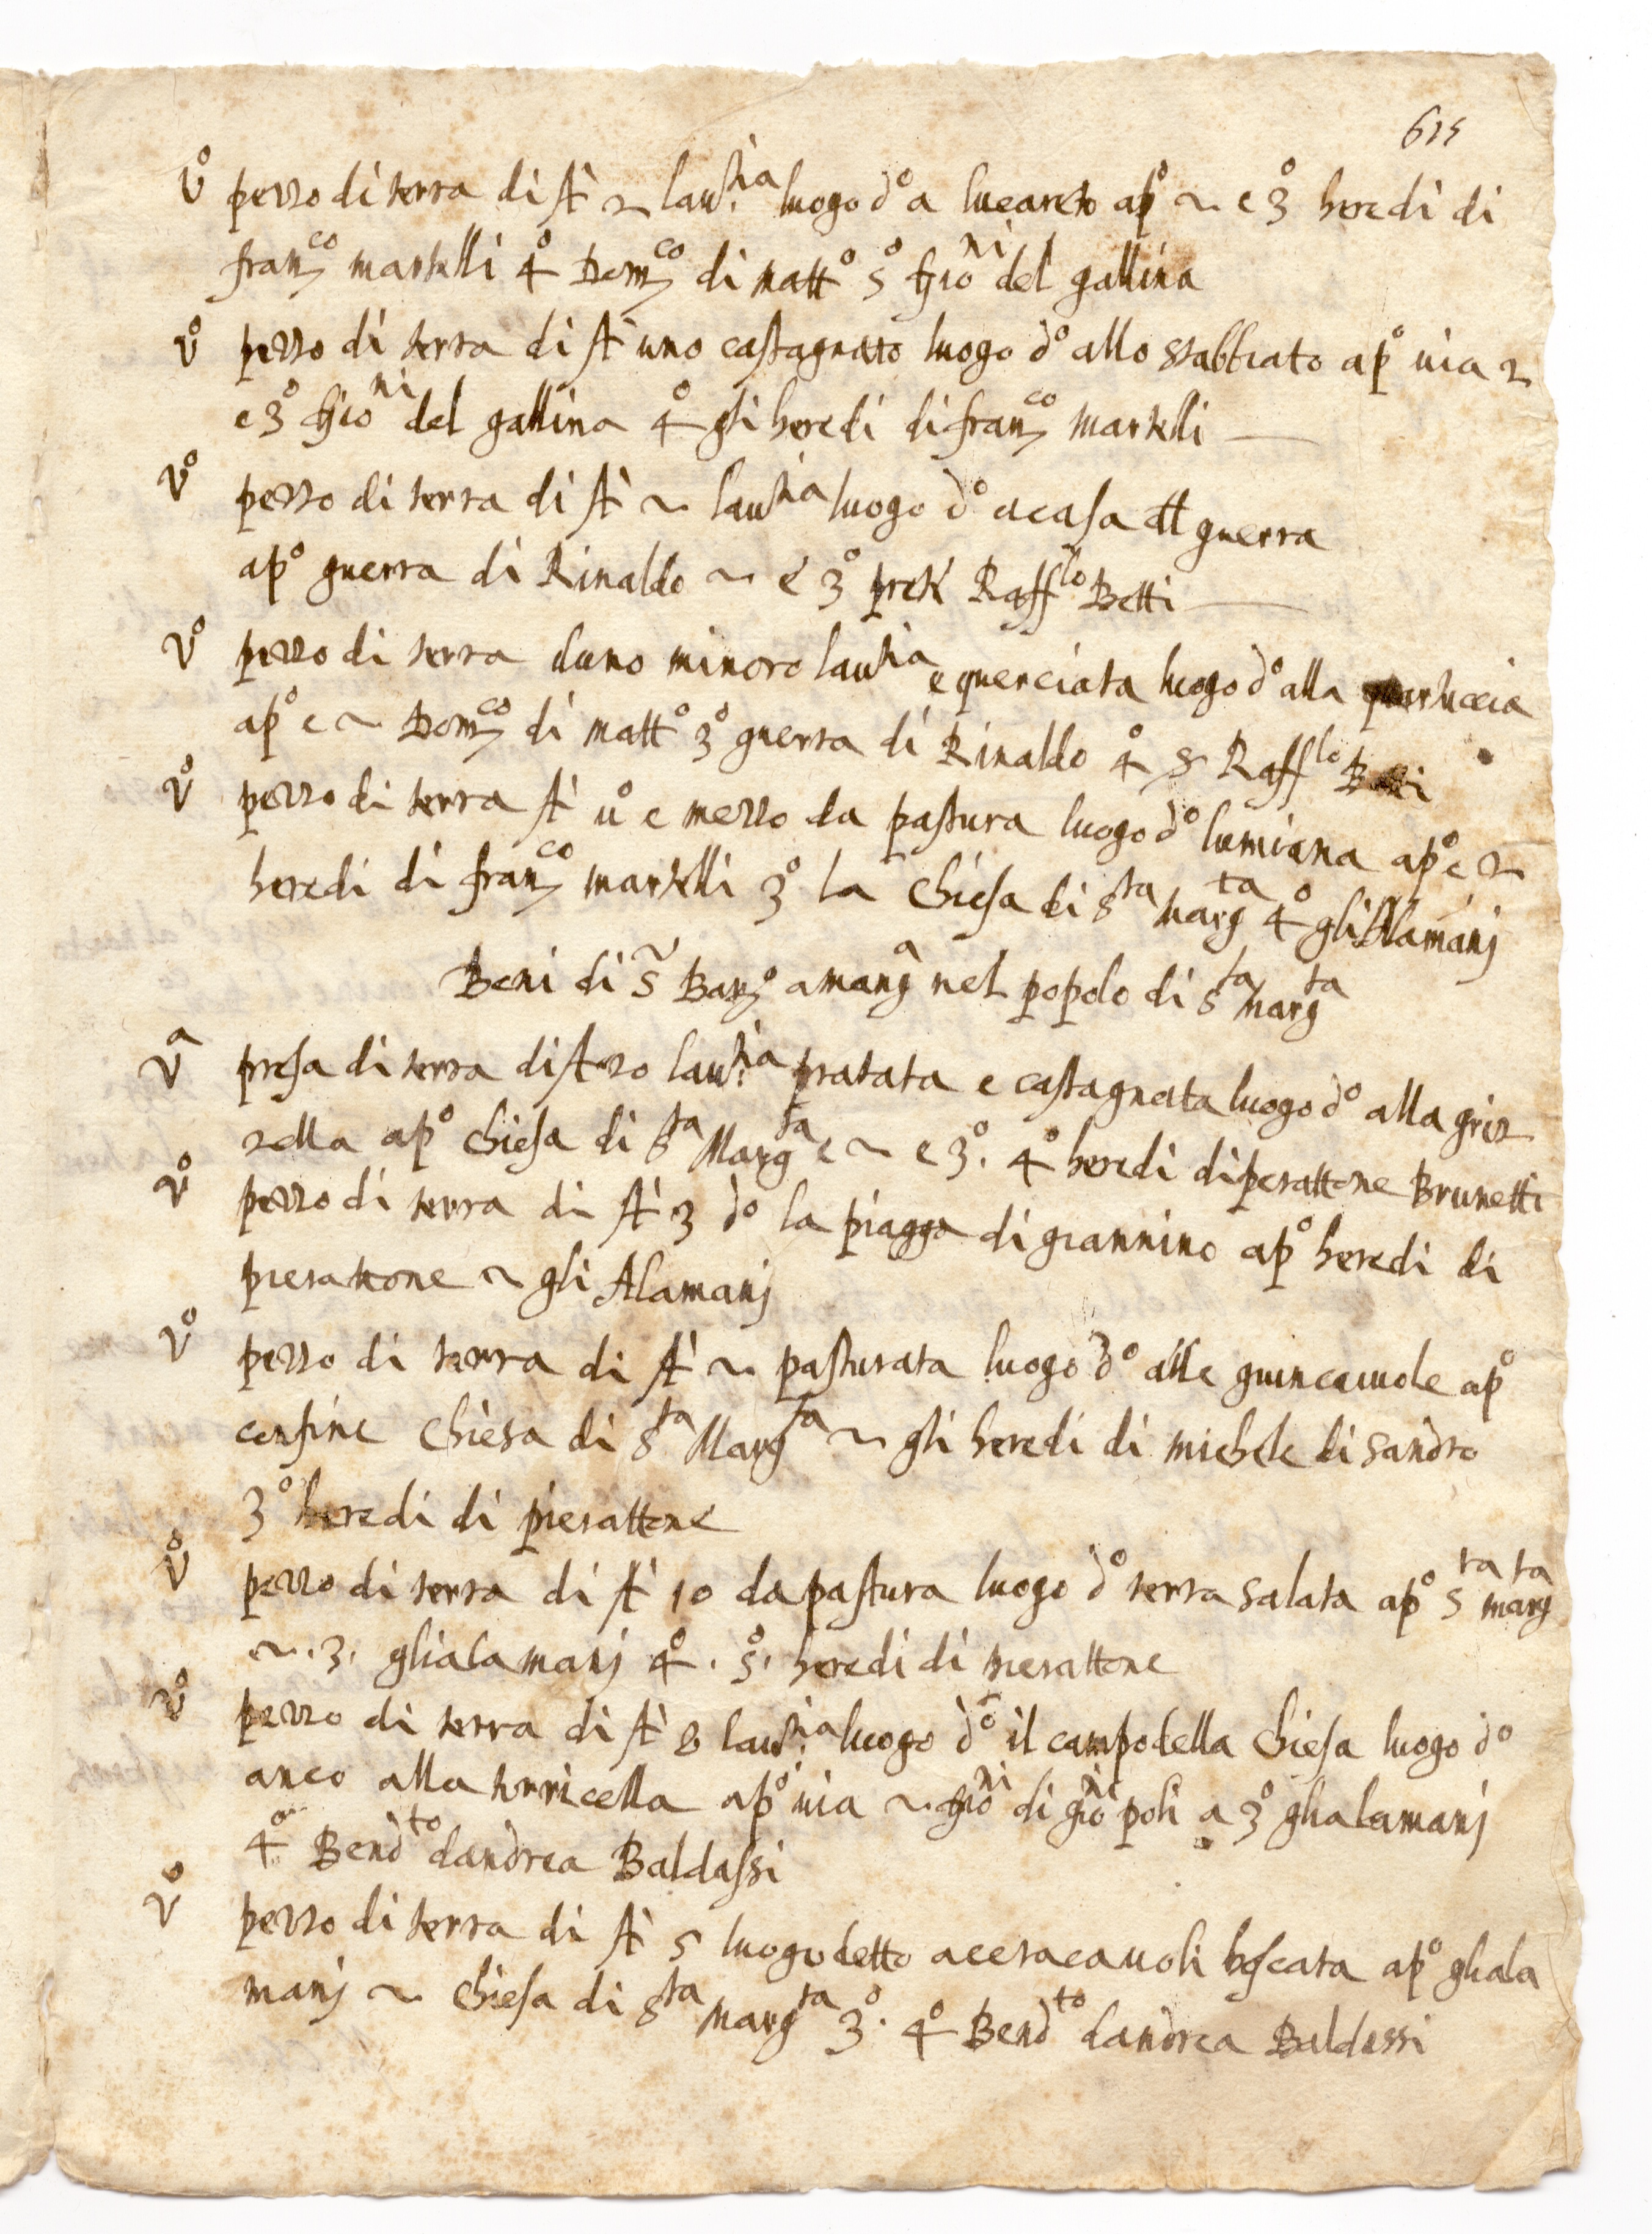 615
Vº pezzo di terra di st̀ 2 lauria luogo dº a lucareto apº 2 e 3º heredi di
franco martelli 4º Domco di mattº 5º gioni del gallina
vº pezzo di terra di st̀ uno castagnato luogo dº allo stabbiato apº via 2
e 3º gioni del gallina 4º gli heredi di franco martelli
Vº pezzo di terra di st̀ 2 lauria luogo dº a casa guerra
apº guerra di Rinaldo 2 e 3º prete Rafflo Betti
Vº pezzo di terra duno minoro lauria e querciata luogo dº alla
apº e 2 Domco di mattº 3º guerra di Rinaldo 4º S Rafflo
Vº pezzo di terra st̀ uº e mezzo da pastura luogo dº lumiana apº e 2
heredi di franco martelli 3º la chiesa di Sta margta 4º gli Alamanj
Beni di S Barº a manga nel popolo di Sta margta
Va presa di terra di st̀ 20 lauria pratata e castagnata luogo dº alla griz
zella apº chiesa di Sta Margta e 2 e 3º. 4º heredi di perattone Brunetti
Vº pezzo di terra di st̀ 3 dº la piagga di giannino apº heredi di
pierattone 2 gli Alamanj
Vº pezzo di terra di st̀ 2 pasturata luogo dº alle guincauole apº
confine chiesa di Sta Margta 2 gli heredi di michele di sandro
3º heredi di pierattone
Vº pezzo di terra di st̀ 10 da pastura luogo dº terra salata apº Sta margta
2.3. glialamanj 4º. 5º. heredi di pierattone
Vº pezzo di terra di st̀ 8 lauria luogo dº il campo della chiesa luogo dº
anco alla torricella apº via 2 gioni di gioni poli a 3º ghalamanj
4º Bendto dandrea Baldassi
Vº pezzo di terra di st̀ 5 luogo detto aceracauoli boscata apº ghala
manj 2 chiesa di Sta margta 3º. 4º Bendto dandrea Baldassi